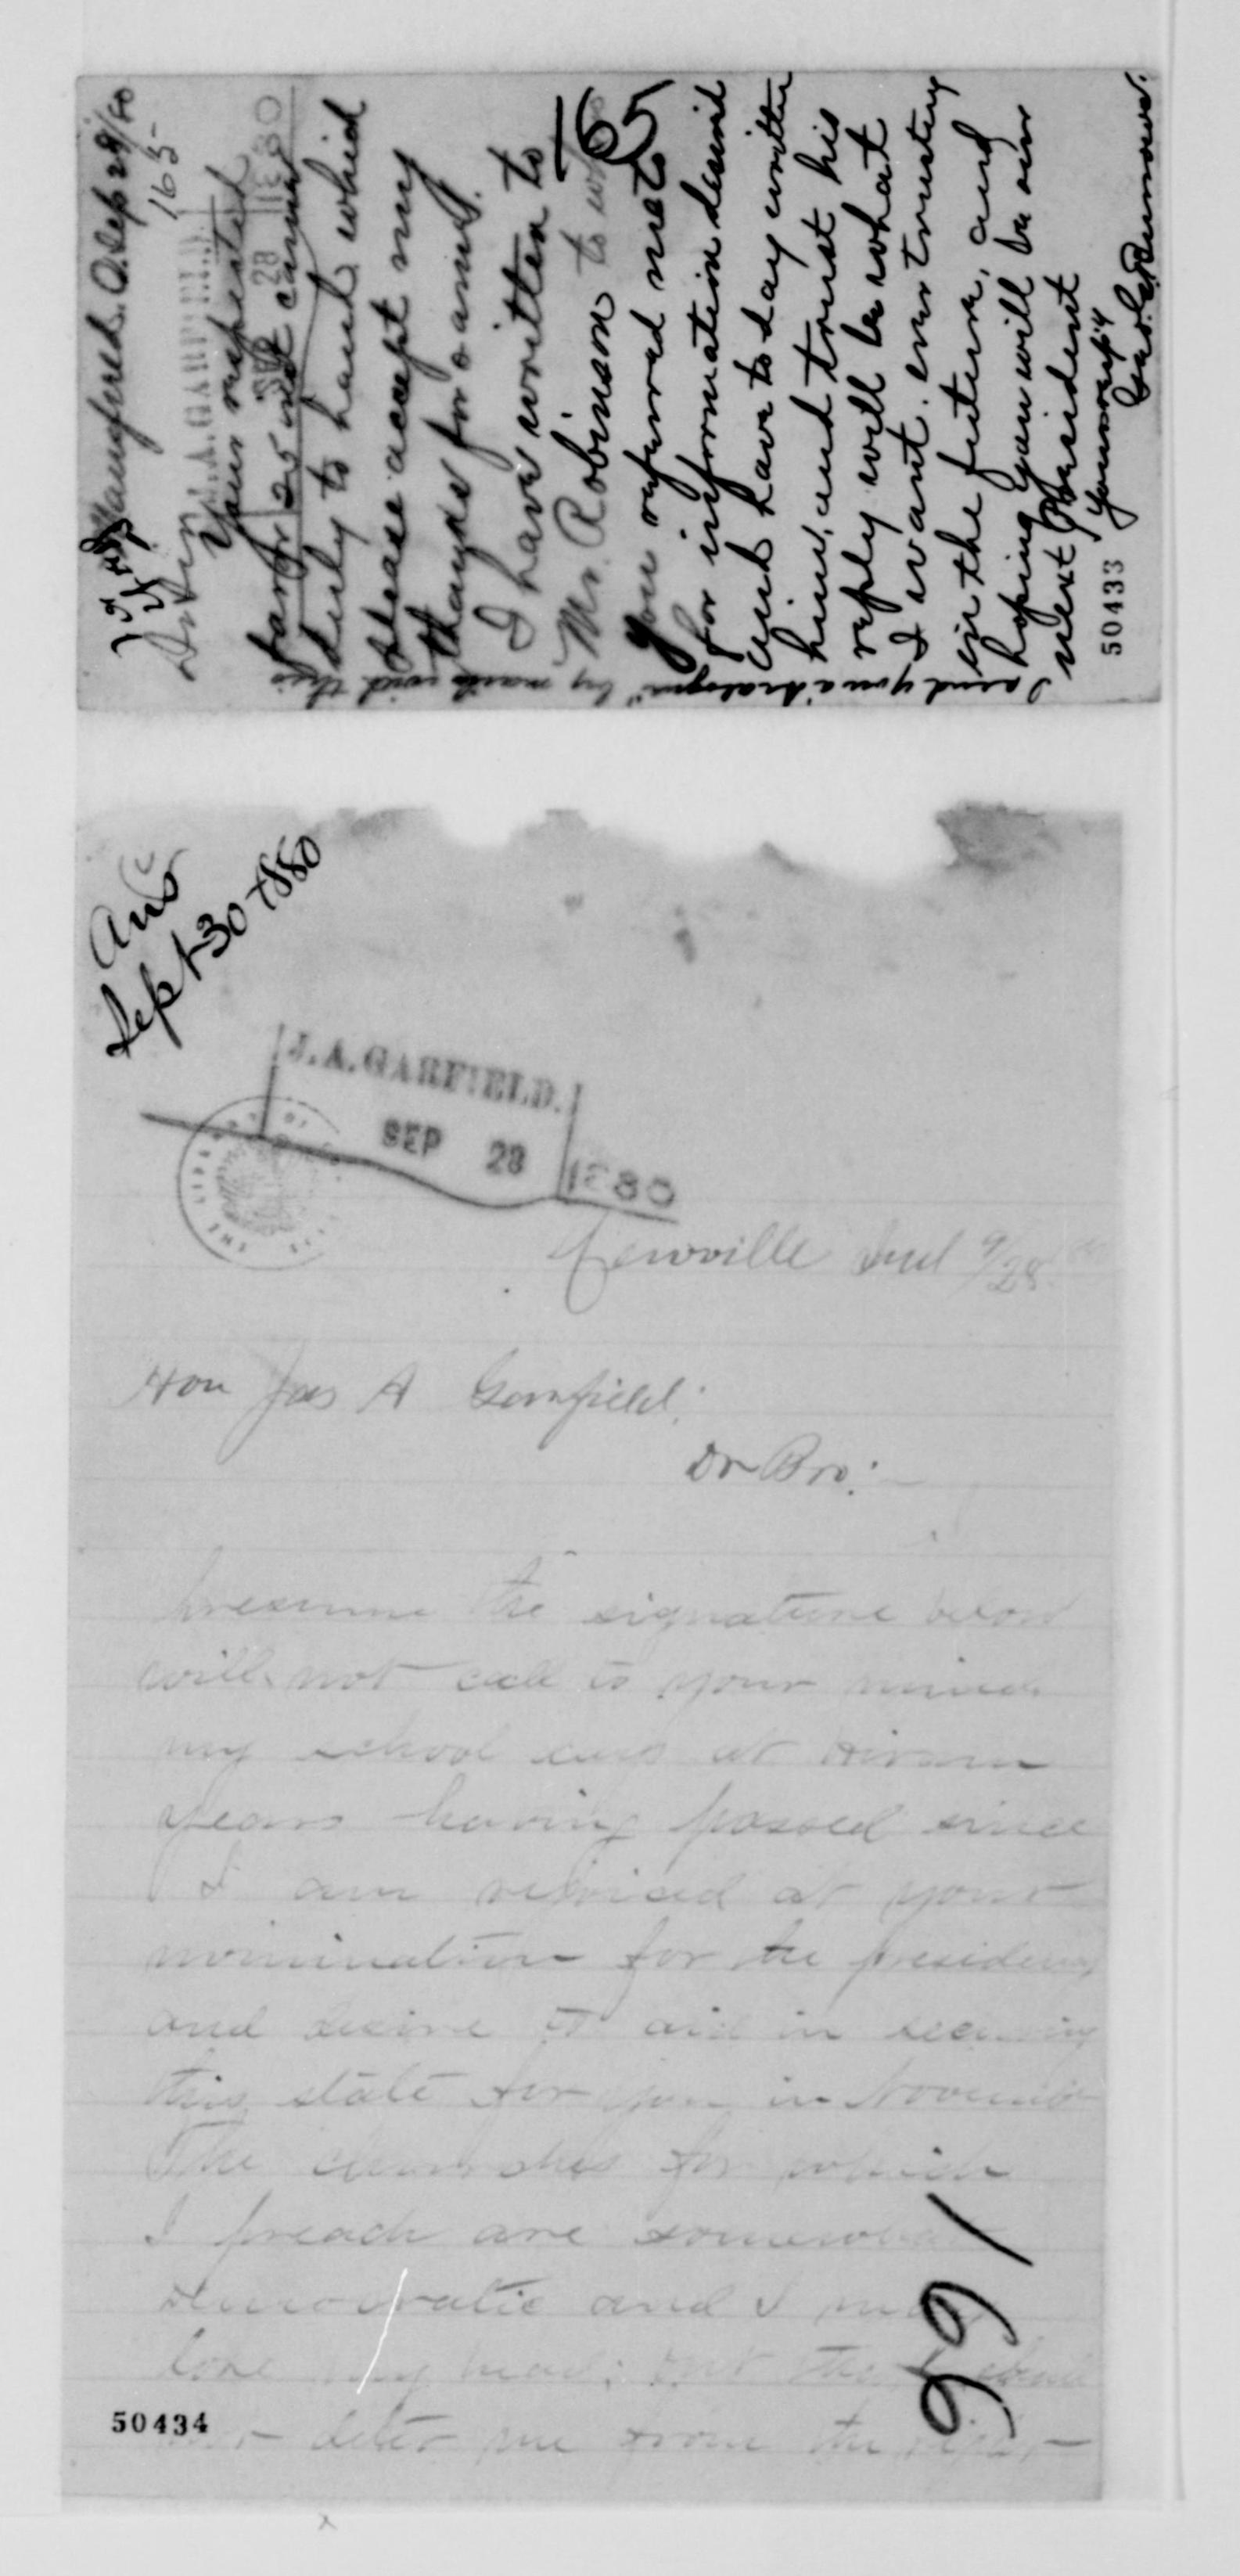 Sep 28/80
165-
J. A. GARFIELD.
SEP 28 1880
Your respected
favor 25 inst came
duly to hand which
please accept my
thanks for same.
I have written to
Mr. Robinson to
you referred me to
for information desired
and have to day written
him, and trust his
reply will be what
I want. ever trusting
in the future, and
hoping you will be our
next President
Yours
I send you a by mail with this
165
50433
Ans
Sept 30 1880
J. A. GARFIELD.
SEP 28 1880
Ind 9/28
Hon Jas A Garfield;
Dr Bro:-
presume the signature below
will not call to your mind
my school days at Hiram
years having passed since
I am rejoiced at your
nomination for the presidency
and desire to aid in securing
this state for you in November
The churches for which
I preach are somewhat
democratic and I may
lose my head; but this
deter me from the
166
50434